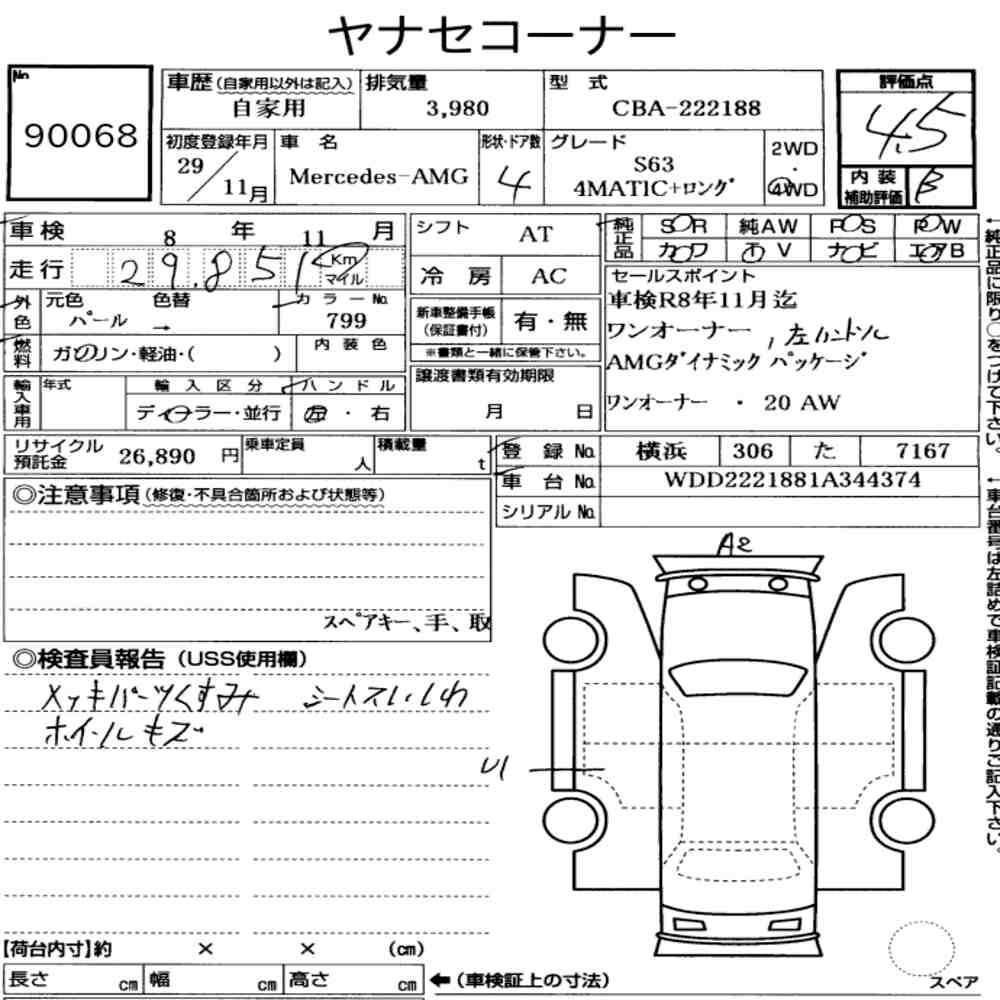 ヤナセコーナー
No.
90068
車歴(自家用以外は記入)
自家用
排気量
3,980
型 式
CBA-222188
評価点
4.5
初度登録年月
29/11月
車 名
Mercedes-AMG
形状・ドア数
4
グレード
S63
4MATIC+ロング
2WD
・
4WD
内装
補助評価
B
車検
8 年 11 月
走行
29,851
Km
マイル
シフト
AT
冷 房
AC
純正品
SR 純AW PS PW
カワ TV ナビ エアB
セールスポイント
車検R8年11月迄
ワンオーナー ,左ハンドル
AMGダイナミック パッケージ
ワンオーナー ・ 20 AW
外色
元色 色替
パール →
カラーNo.
799
新車整備手帳
(保証書付)
有・無
※書類と一緒に保管下さい。
燃料
ガソリン・軽油・( )
内装色
輸入車用
年式
輸入区分
ディーラー・並行
ハンドル
左 ・ 右
譲渡書類有効期限
月 日
リサイクル
預託金
26,890 円
乗車定員
人
積載量
t
登 録 No.
横浜 306 た 7167
車 台 No.
WDD2221881A344374
シリアル No.
◎注意事項(修復・不具合箇所および状態等)
スペアキー、手、取
◎検査員報告(USS使用欄)
メッキパーツくすみ シートスレ・しわ
ホイールキズ
A2
U1
【荷台内寸】約 × × (cm)
長さ cm 幅 cm 高さ cm
←(車検証上の寸法)
スペア
←純正品に限り○をつけて下さい。
←車台番号は左詰めで車検証記載の通りご記入下さい。